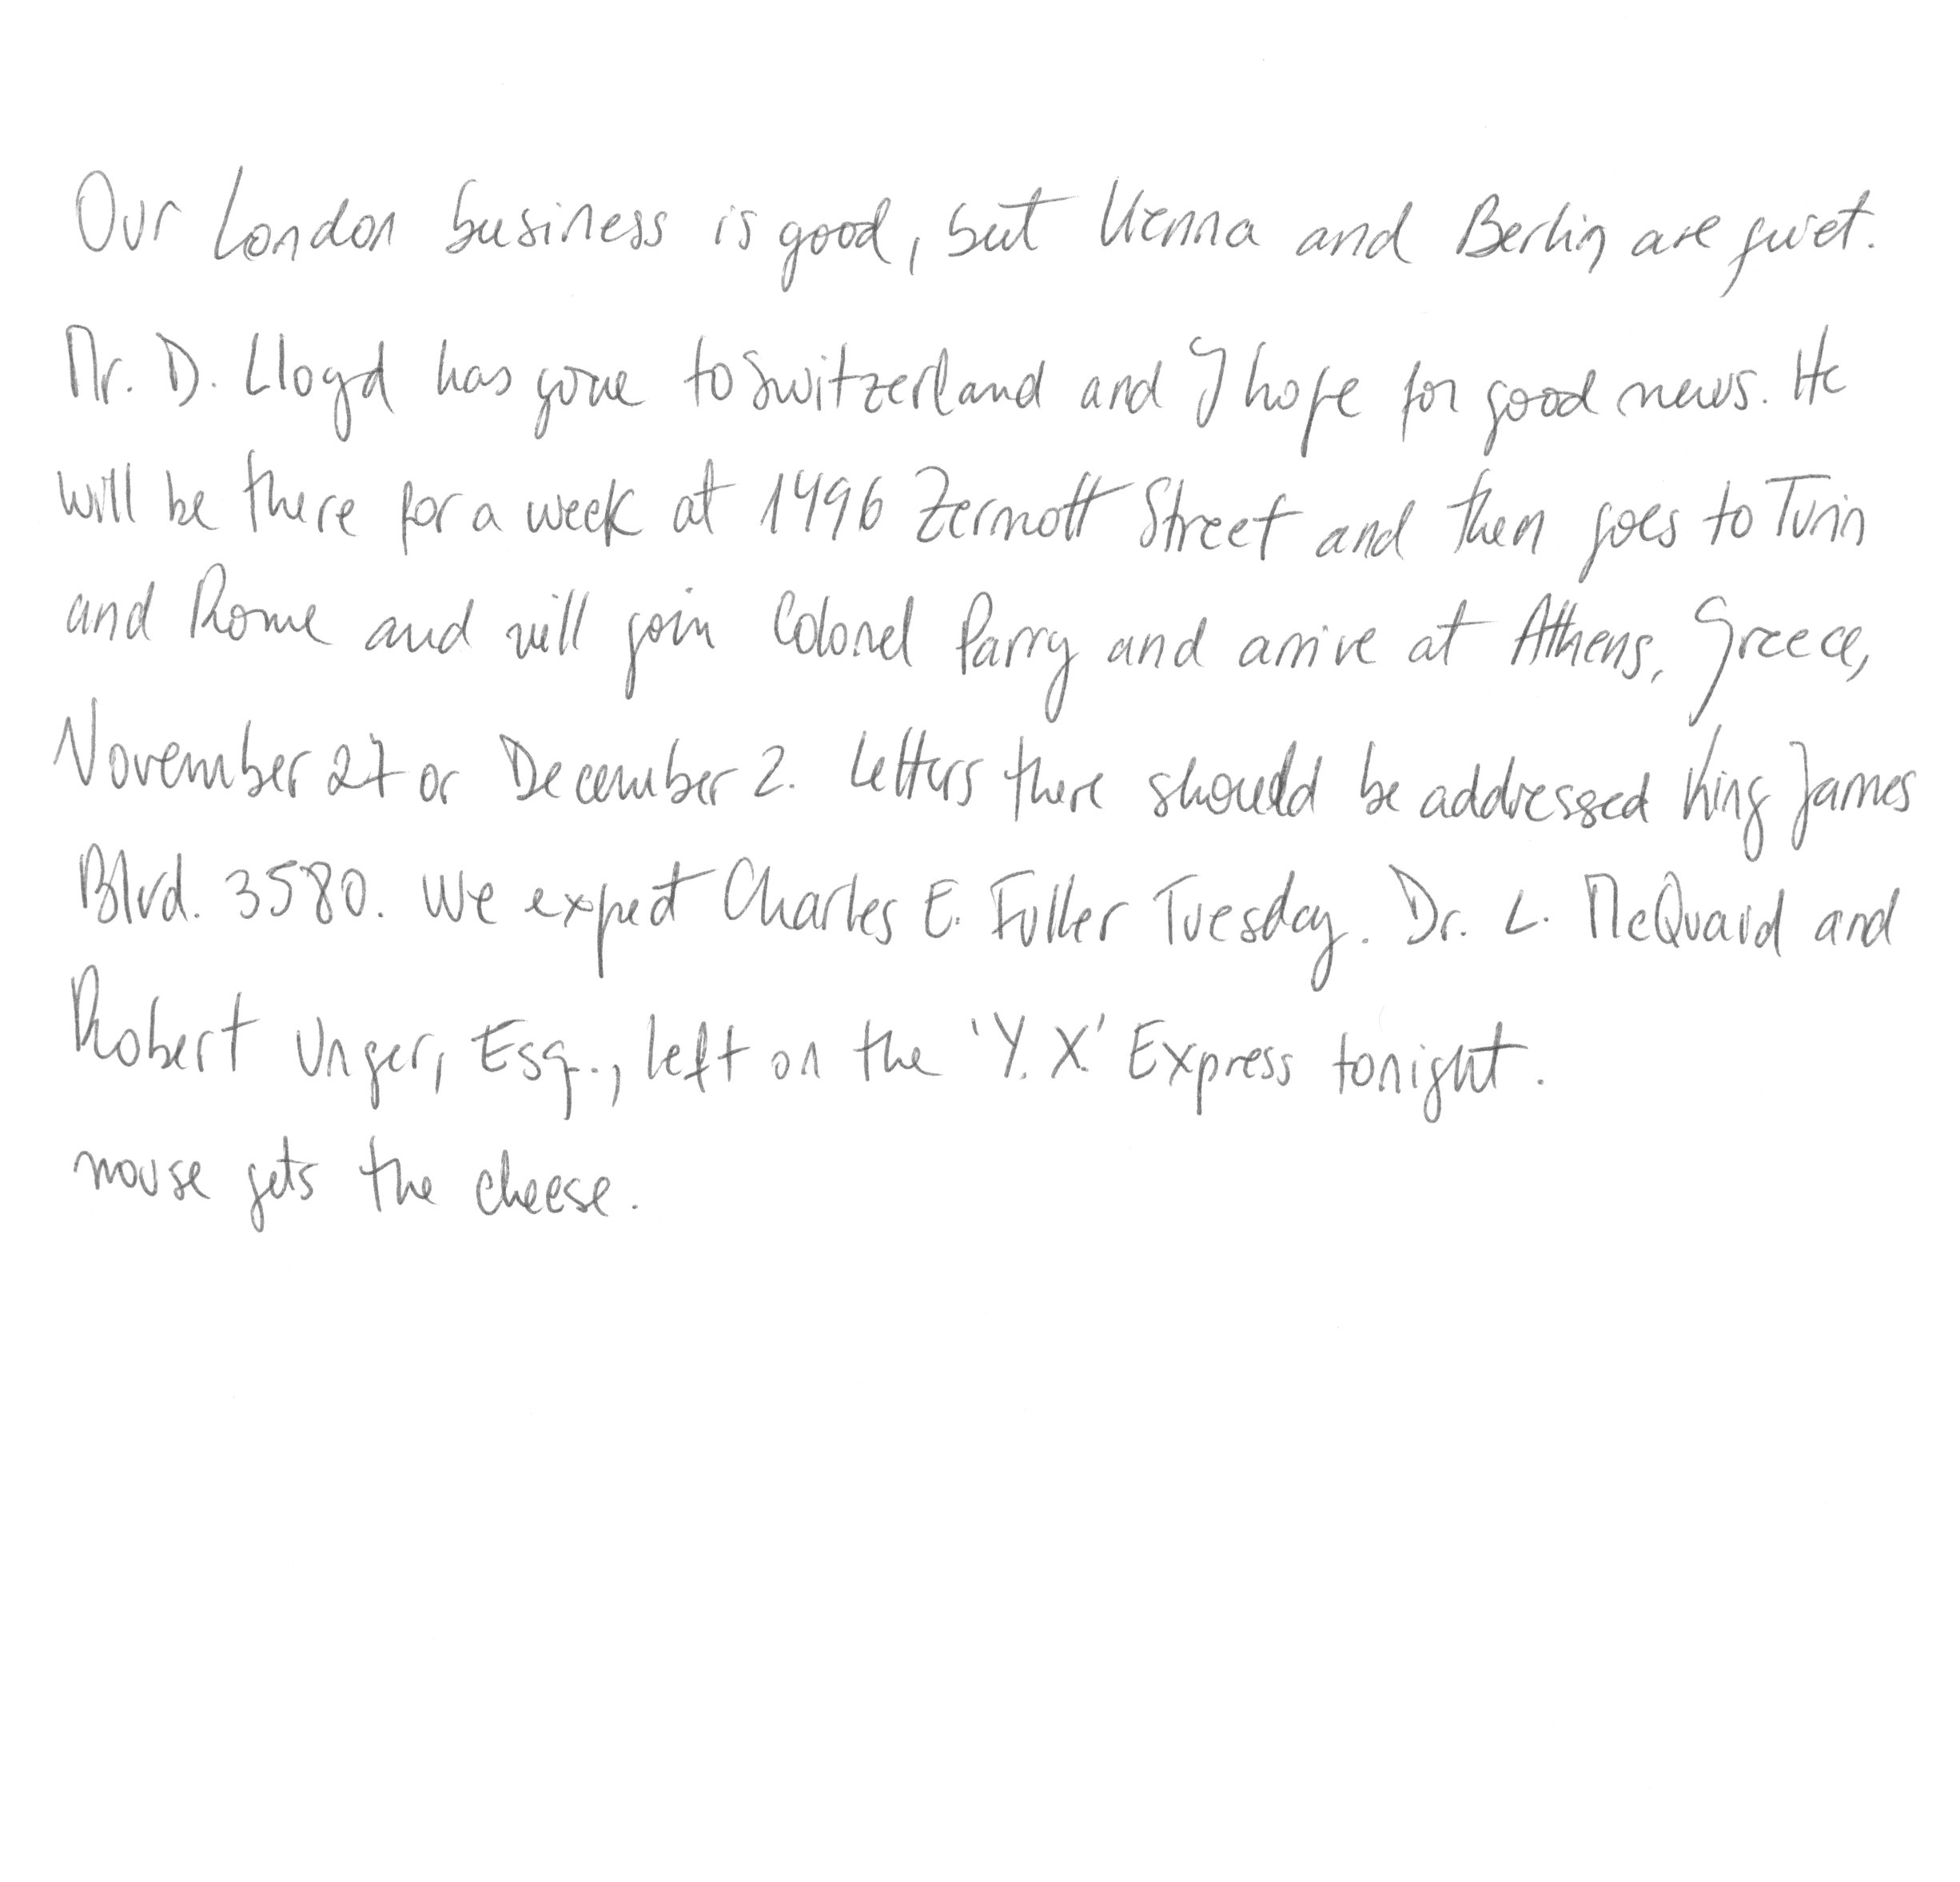 Our London business is good, but Vienna and Berlin are quiet.
Mr. D. Lloyd has gone to Switzerland and I hope for good news. He
will be there for a week at 1496 Zermott Street and then goes to Turin
and Rome and will join Colonel Parry and arrive at Athens, Greece,
November 27 or December 2. Letters there should be addressed King James
Blvd. 3580. We expect Charles E. Fuller Tuesday. Dr. L. McQuaid and
Robert Unger, Esq., left on the 'Y.X.' Express tonight.
mouse gets the cheese.